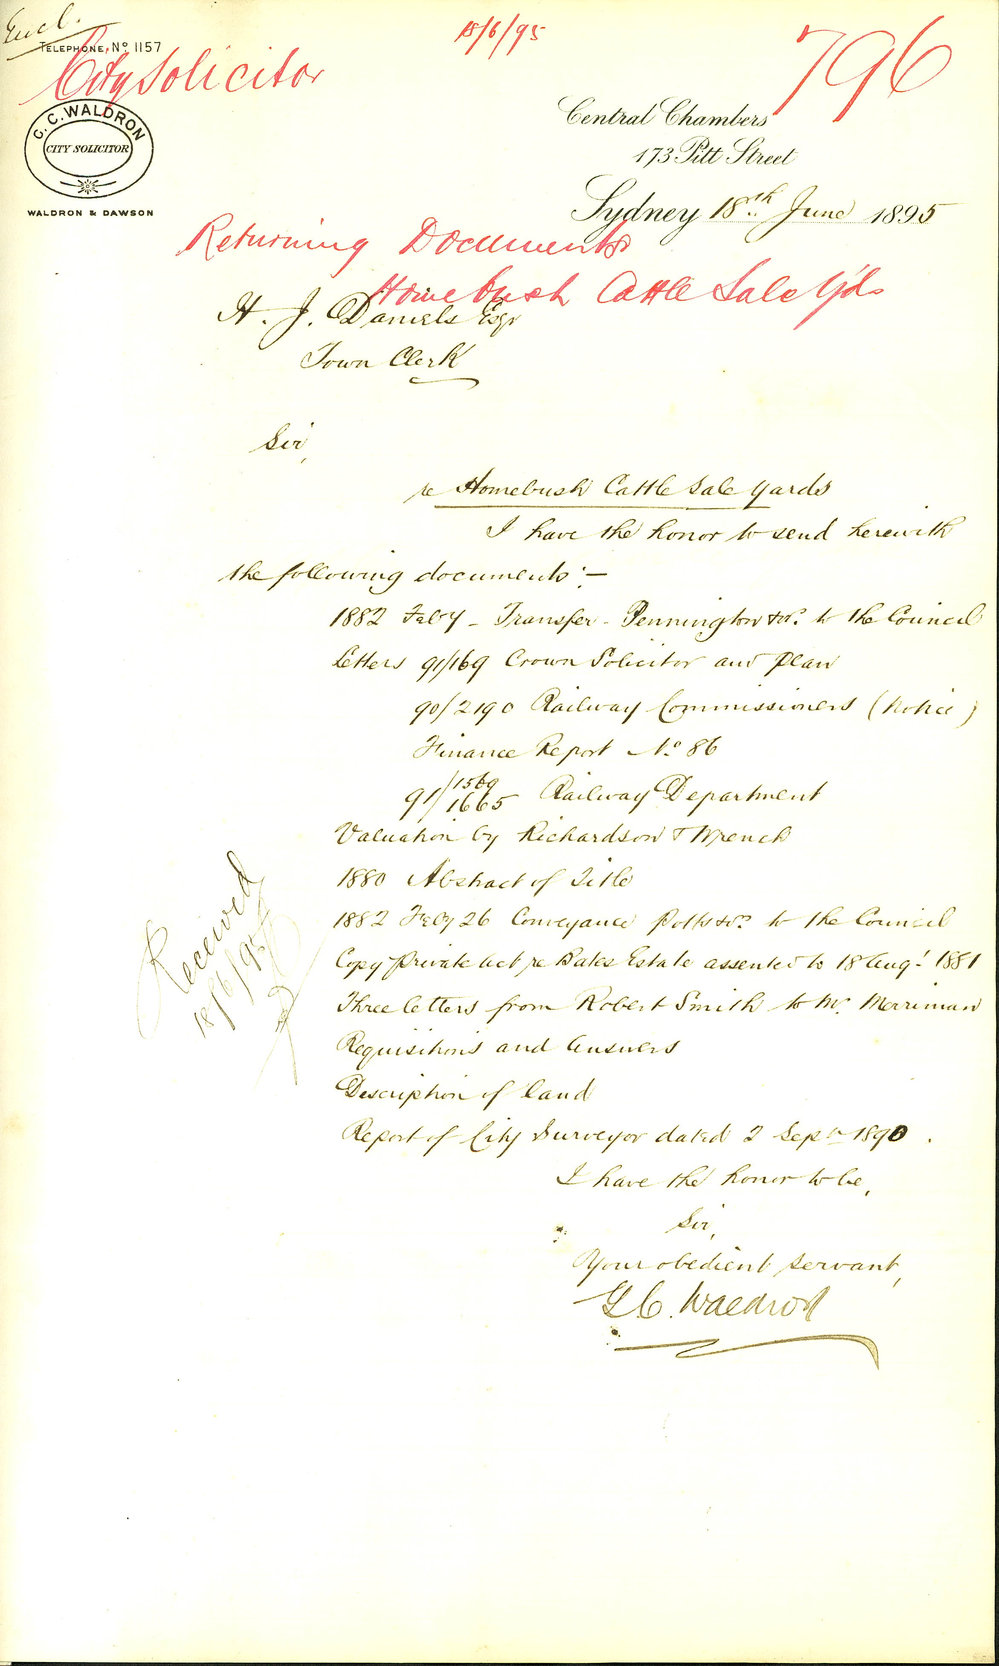 Encl.
18/6/95
796
TELEPHONE, No 1157
City Solicitor
G. C. WALDRON
CITY SOLICITOR
WALDRON & DAWSON
Central Chambers
173 Pitt Street
Sydney 18th June 1895
Returning Documents
Homebush Cattle Sale Yds
H. J. Daniels Esqr
Town Clerk
Sir,
re Homebush Cattle Sale Yards
I have the honor to send herewith
the following documents :—
1882 Feby - Transfer - Pennington &or. to the Council
Letters 91/169 Crown Solicitor and Plan
90/2190 Railway Commissioners (Notice)
Finance Report No. 86
91/1569/1665 Railway Department
Valuation by Richardson & Wrench
1880 Abstract of Title
1882 Feby 26 Conveyance Potts &or. to the Council
Copy Private Act re Bates Estate assented to 18 Augt. 1881
Three letters from Robert Smith to Mr. Merriman
Requisitions and Answers
Description of land
Report of City Surveyor dated 2 Sept 1890.
I have the honor to be,
Sir,
Your obedient servant,
G C. Waldron
Received
18/6/95